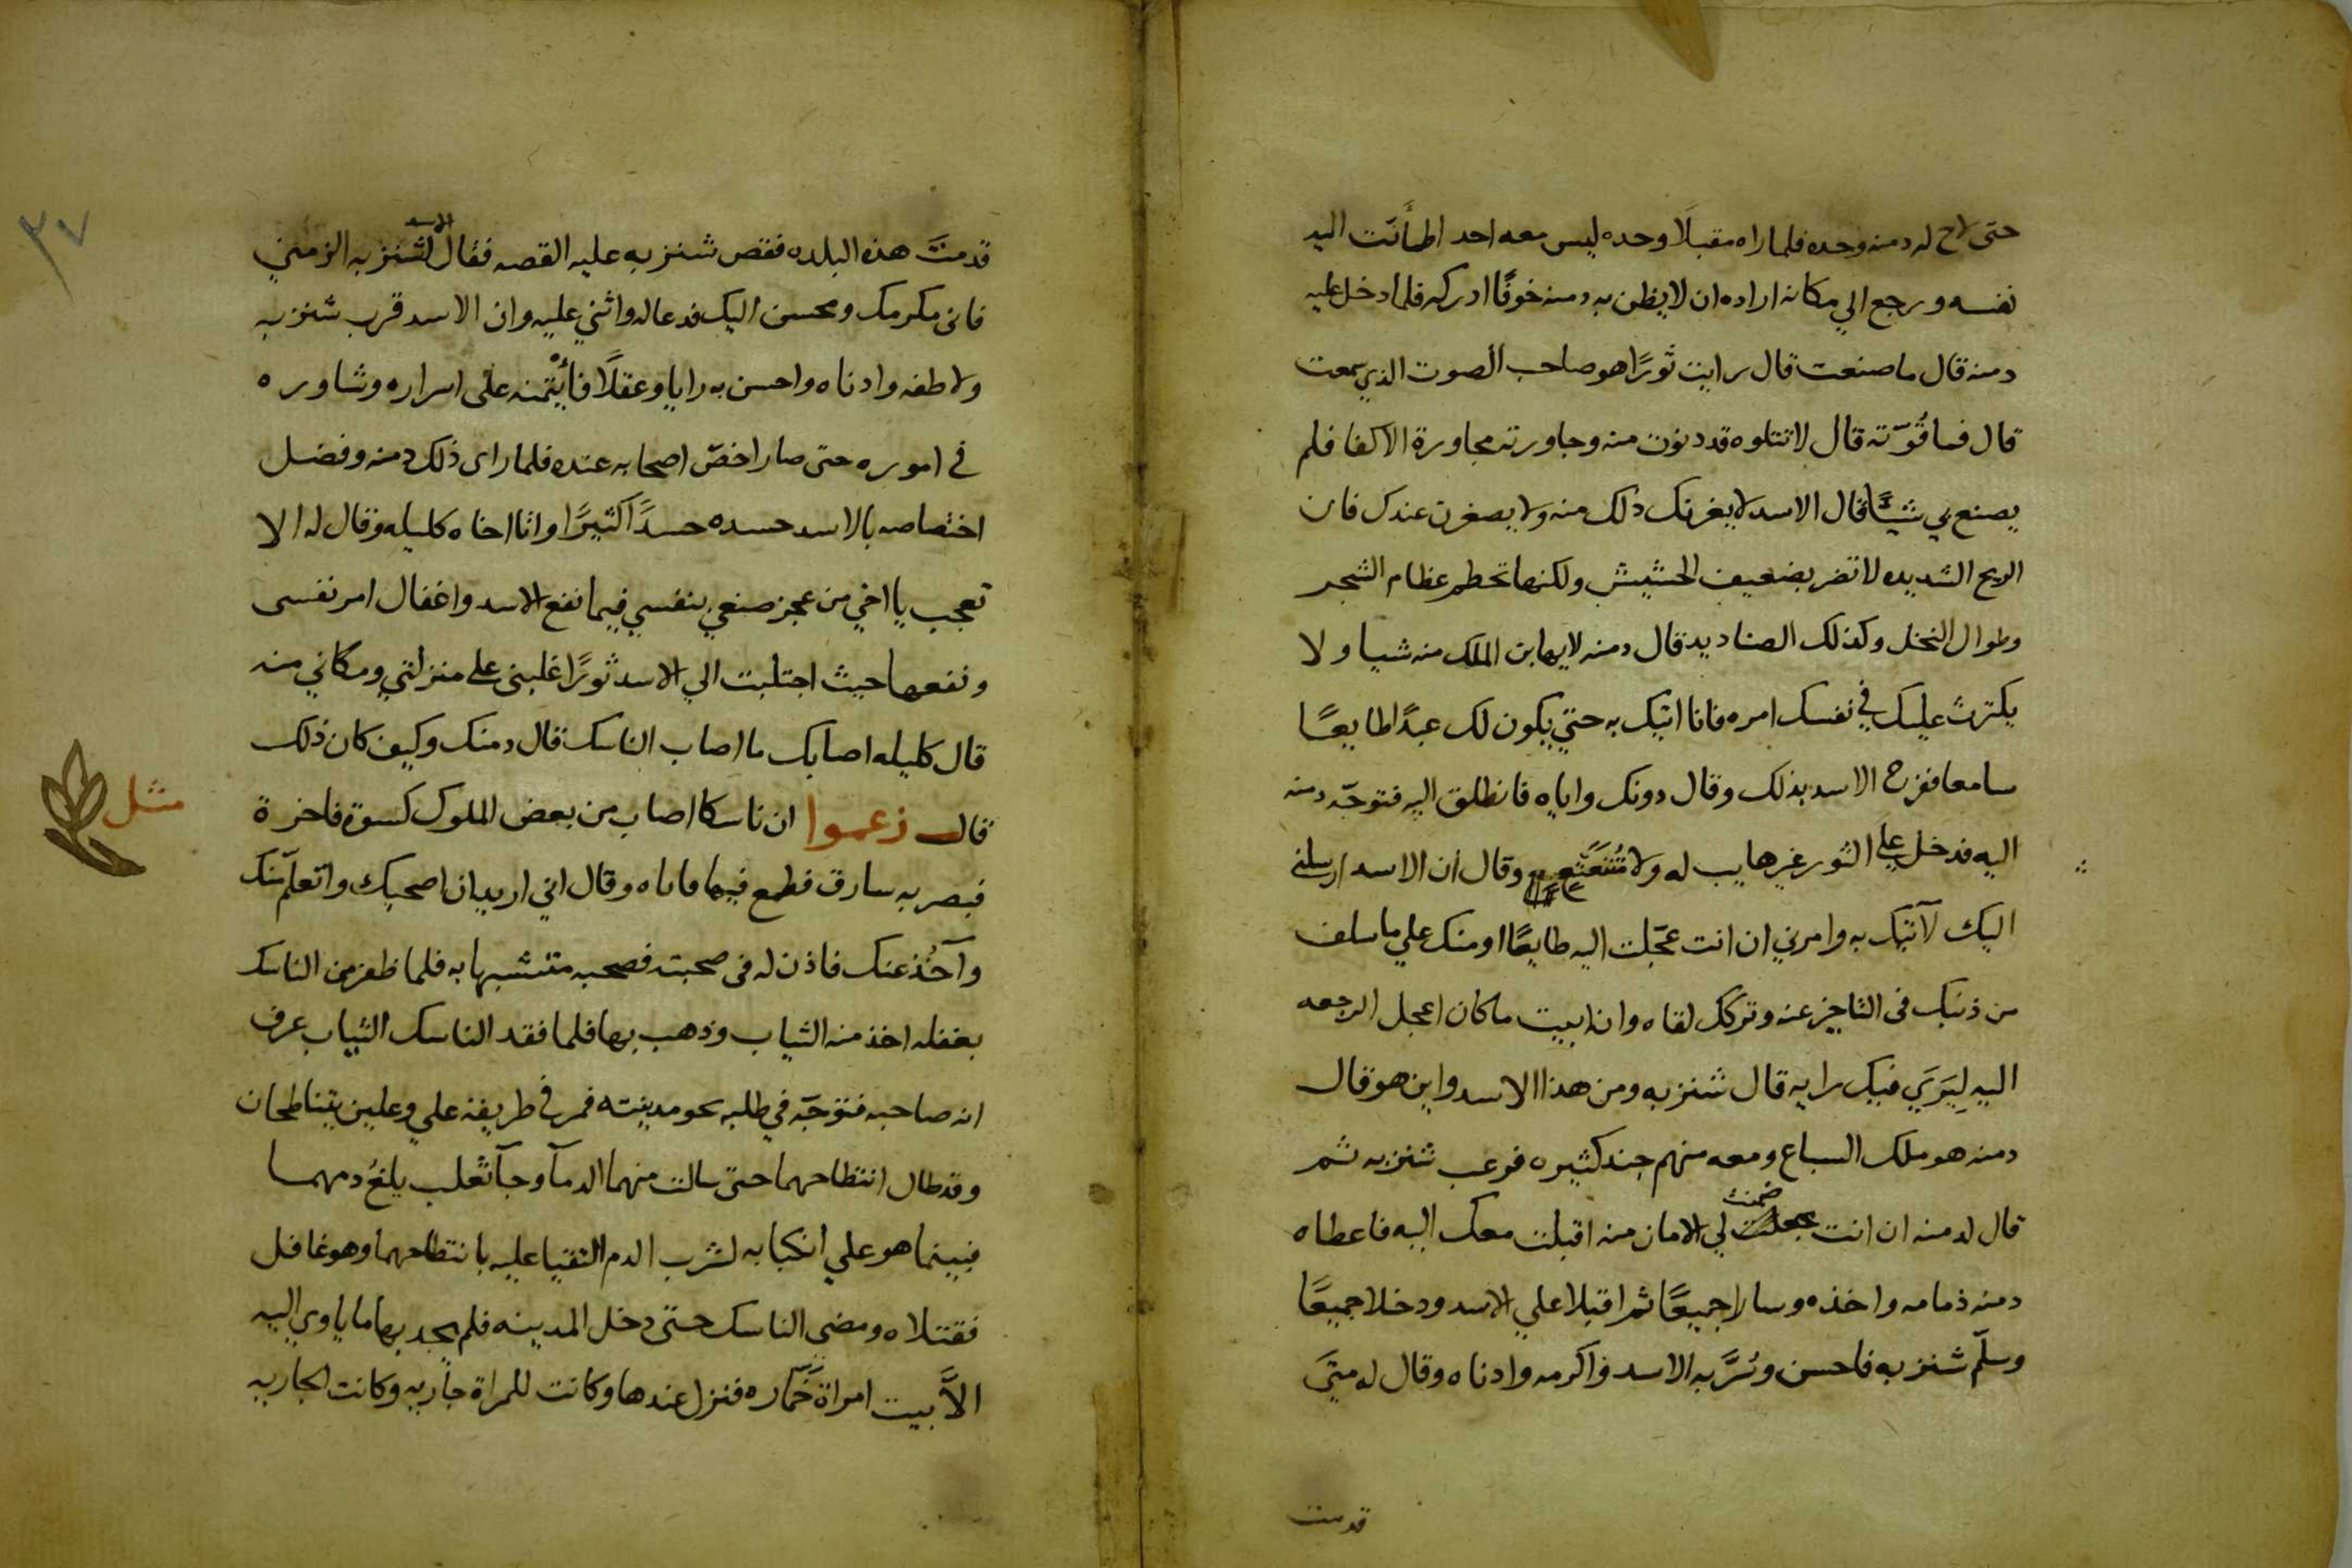 حتى لاح له دمنه وحده فلما راه مقبلًا وحده ليس معه احد اطمأنت اليه
نفسه ورجع الي مكانه اراده ان لا يظن به دمنه خوفًا ادركه فلما دخل عليه
دمنه قال ما صنعت قال رايت ثورًا هو صاحب الصوت الذي سمعت
قال فما قُوّته قال لا تتلوه قد دنوت منه وجاورته مجاورة الاكفا فلم
يصنع بي شيًا قال الاسد لا يغرنك ذلك منه ولا يصغرن عندك فان
الريح الشديده لا تضر بضعيف الحشيش ولكنها تحطم عظام الشجر
وطوال النخل وكذلك الصناديد قال دمنه لا يهابن الملك منه شيا ولا
يكترث عليك في نفسك امره فانا اتيك به حتي يكون لك عبدًا طايعًا
سامعا ففرح الاسد بذلك وقال دونك واياه فانطلق اليه فتوجّه دمنه
اليه فدخل علي الثور غير هايب له ولا مُتَتَعْتِع وقال ان الاسد ارسلني
اليك لآتيك به وامرني ان انت عجّلت اليه طايعًا اومنك علي ما سلف
من ذنبك فى التاخير عنه وتركك لقاه وان ابيت ما كان اعجل الرجعه
اليه لِيَرَي فيك رايه قال شنزبه ومن هذا الاسد واين هو قال
دمنه هو ملك السباع ومعه منهم جند كثيره فرعب شنزبه ثم
قال لدمنه ان انت ضمنت لي الامان منه اقبلت معك اليه فاعطاه
دمنه ذمامه واخذه وسارا جميعًا ثم اقبلا علي الاسد ودخلا جميعًا
وسلّم شنزبه فاحسن وسُرَّ به الاسد واكرمه وادناه وقال له متيَ
قدمت
٣٧
قدمتَ هذه البلده فقص شنزبه عليه القصه فقال الاسد لشنزبه الزمني
فانى مكرمك ومحسن اليك فدعا له واثني عليه وان الاسد قرب شنزبه
ولاطفه وادناه واحسن به رايا وعقلًا فائْتمنه على اسراره وشاوره
في اموره حتى صار اخصّ اصحابه عنده فلما راى ذلك دمنه وفضل
اختصاصه بالاسد حسده حسدًا كثيرًا واتا اخاه كليله وقال له الا
تعجب يا اخي من عجز صنعي بنفسي فيما نفع الاسد واغفال امر نفسى
ونفعها حيث اجتلبت الي الاسد ثورًا غلبنى على منزلتي ومكاني منه
قال كليله اصابك ما اصاب الناسك قال دمنك وكيف كان ذلك
مثل
قال زعموا ان ناسكا اصاب من بعض الملوك كسوة فاخرة
فبصر به سارق فطمع فيها فاتاه وقال اني اريد ان اصحبك واتعلّم منك
وآخُذ عنك فاذن له فى صحبته فصحبه متشبها به فلما ظفر من الناسك
بغفله اخذ منه الثياب وذهب بها فلما فقد الناسك الثياب عرف
انه صاحبه فتوجّه في طلبه نحو مدينته فمر في طريقه علي وعلين يتناطحان
وقد طال انتطاحهما حتى سالت منهما الدمآ وجآ ثعلب يلغُ دمهما
فبينما هو علي انكبابه لشرب الدم التقيا عليه بانتطاحهما وهو غافل
فقتلاه ومضي الناسك حتى دخل المدينه فلم يجد بها ما ياوي اليه
الاَّ بيت امراة خَمّاره فنزل عندها وكانت للمراة جاريه وكانت الجاريه